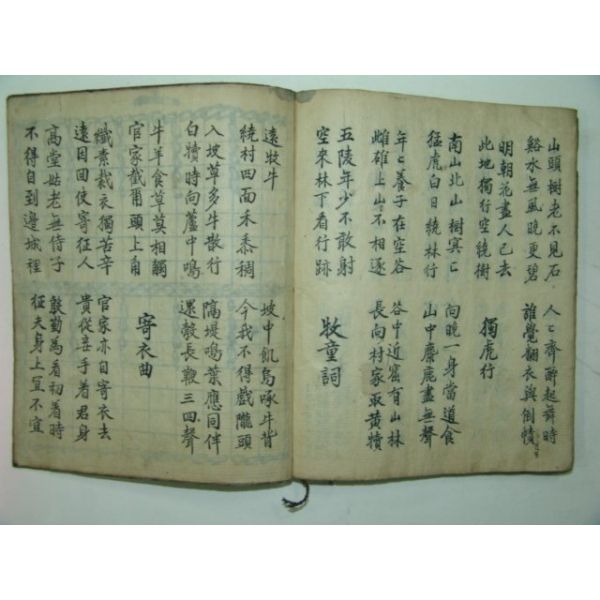 山頭樹老不見石
谿水無風晚更碧
人〻齊醉起舞時
誰覺翻衣與倒幘
明朝花盡人已去
此地獨行空繞樹
獨虎行
南山北山樹冥〻
猛虎白日繞林行
向晚一身當道食
山中麋鹿盡無聲
年〻養子在空谷
雌雄上山不相逐
谷中近窟有山林
長向村家取黃犢
五陵年少不敢射
空來林下看行跡
牧童詞
遠牧牛
繞村四面禾黍稠
坡中飢烏啄牛背
今我不得戲隴頭
入坡草多牛散行
白犢時向蘆中鳴
隔堤鳴葉應同伴
還鼓長鞭三四聲
牛羊食草莫相觸
官家截爾頭上角
寄衣曲
纖素裁衣獨苦辛
遠因回使寄征人
官家亦自寄衣去
貴從妾手着君身
高堂姑老無侍子
不得自到邊城裡
殷勤為看初着時
征夫身上宜不宜